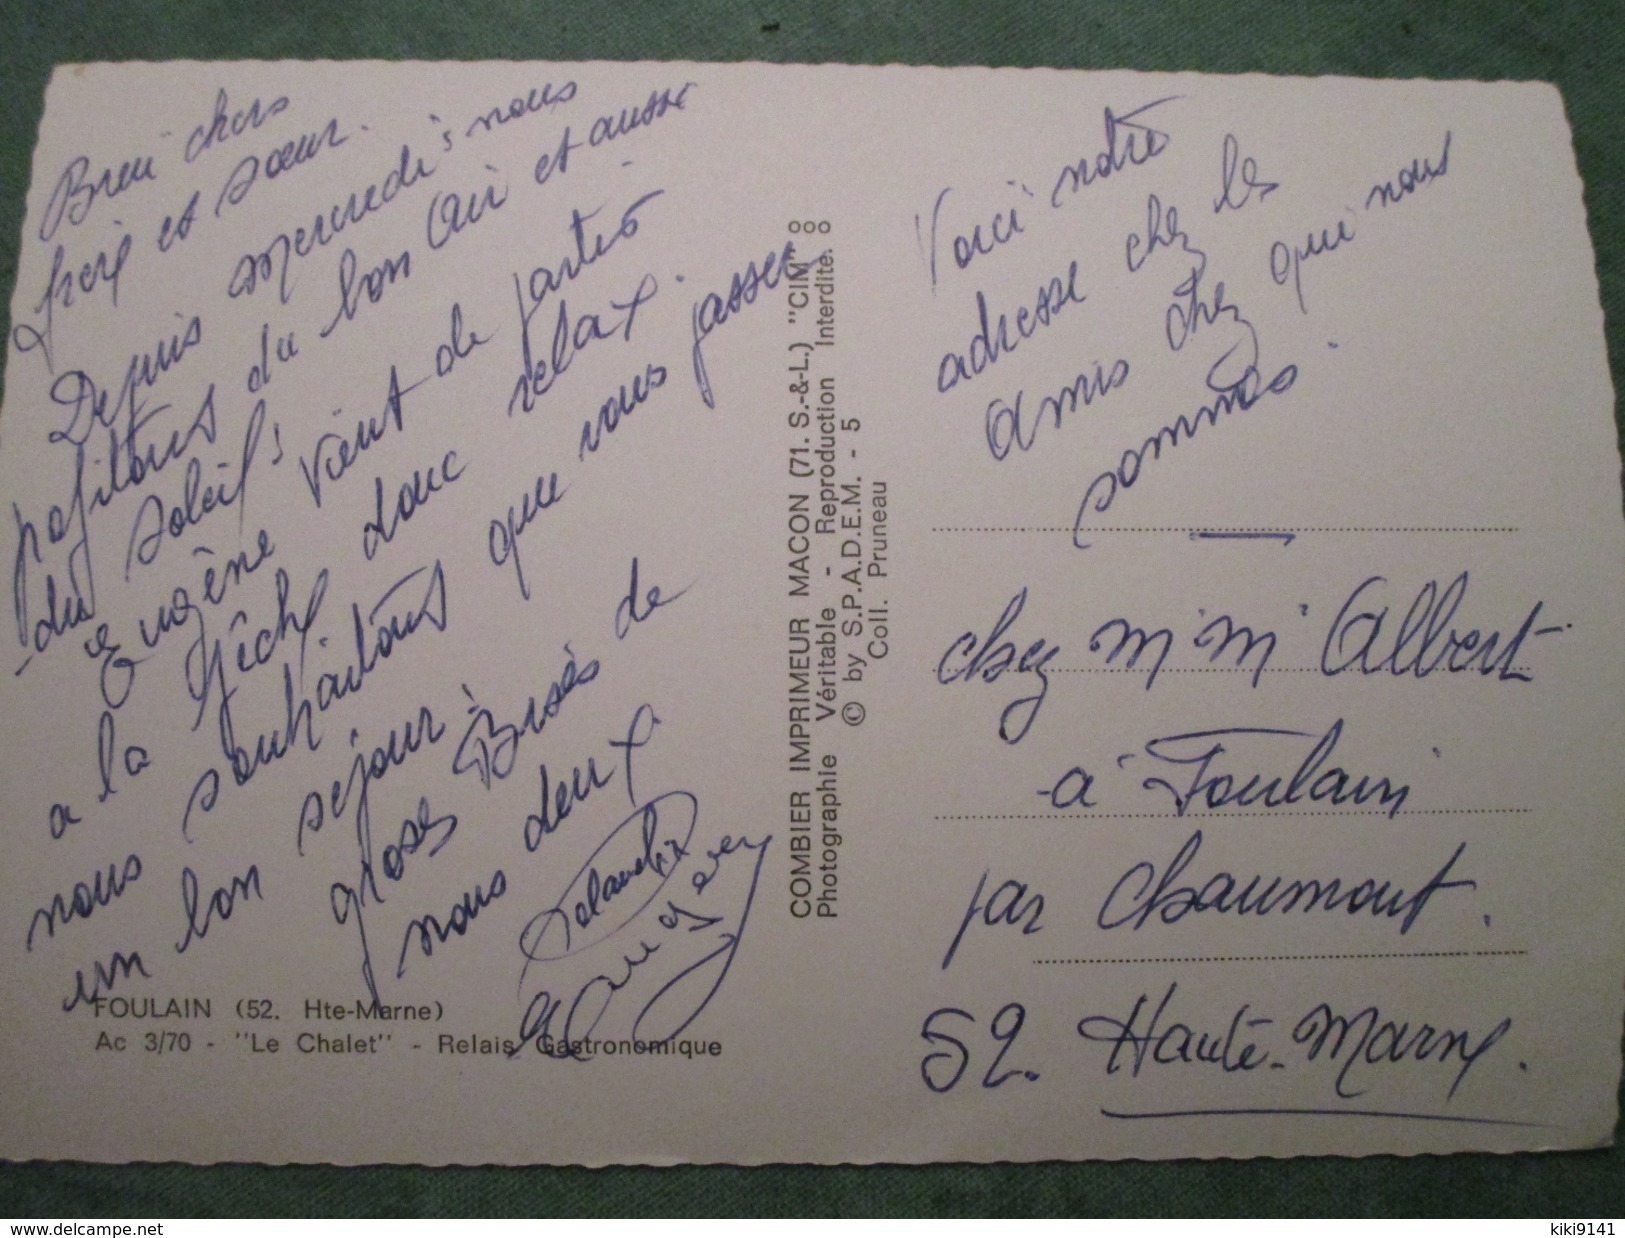 Bien chers
frère et sœur.
Depuis mercredi nous
profitons du bon air et aussi
du soleil;
Eugène vient de partir
a la pêche donc relax.
nous souhaitons que vous passez
un bon séjour.
grosses Bises de
nous deux
Eugène
FOULAIN (52. Hte-Marne)
Ac 3/70 - "Le Chalet" - Relais Gastronomique
COMBIER IMPRIMEUR MACON (71. S.-&-L.) "CIM"
Photographie Véritable - Reproduction Interdite.
© by S.P.A.D.E.M. - 5
Coll. Pruneau
Voici notre
adresse chez les
amis chez qui nous
sommes.
chez m m Albert
-à Foulain
par Chaumont.
52. Haute-Marne.
www.delcampe.net
kiki9141